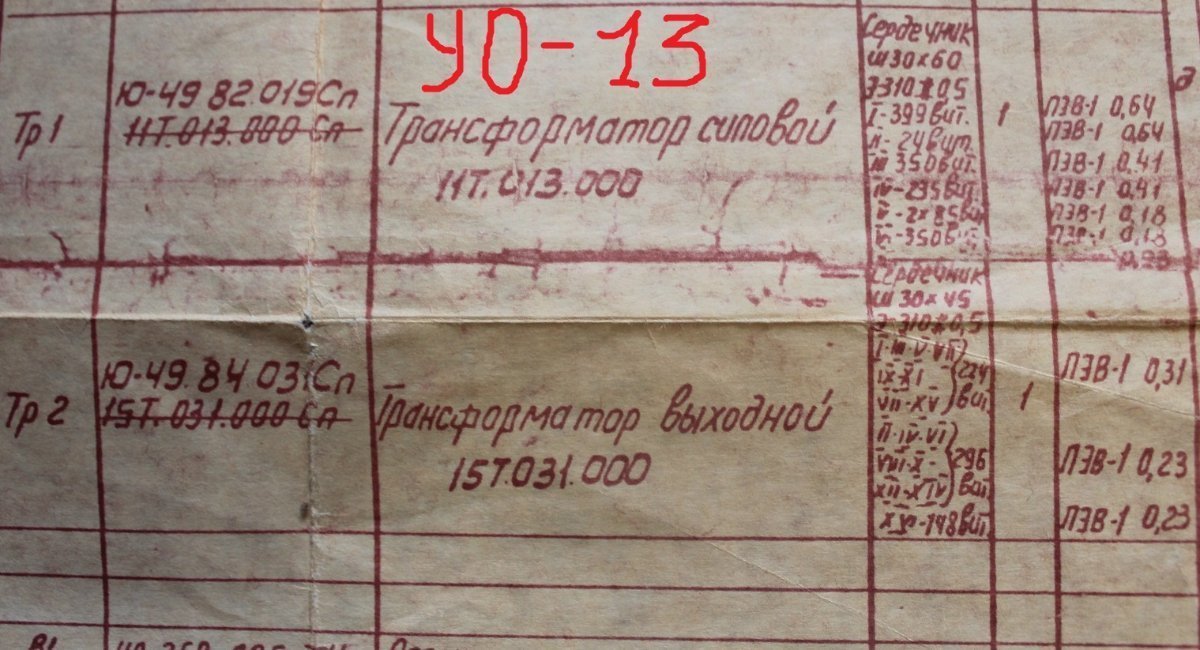 УО-13
Тр1
Ю-49 82.019Сп
11Т.013.000 Сп
Трансформатор силовой
11Т.013.000
Сердечник
Ш30х60
Э310х05
I-399вит.
II-24вит.
III 350вит.
IV-295вит.
V-2х85вит
VI-350вит.
1
ПЭВ-1 0,64
ПЭВ-1 0,64
ПЭВ-1 0,41
ПЭВ-1 0,41
ПЭВ-1 0,18
ПЭВ-1 0,18
0,23
Тр2
Ю-49.84 031Сп
15Т.031.000 Сп
Трансформатор выходной
15Т.031.000
Сердечник
Ш30х45
Э-310х0,5
I-III-V-VII
IX-XI 224
VII-XV вит.
II-IV-VI
VIII-X- 296
XII-XIV вит.
148вит.
1
ПЭВ-1 0,31
ПЭВ-1 0,23
ПЭВ-1 0,23